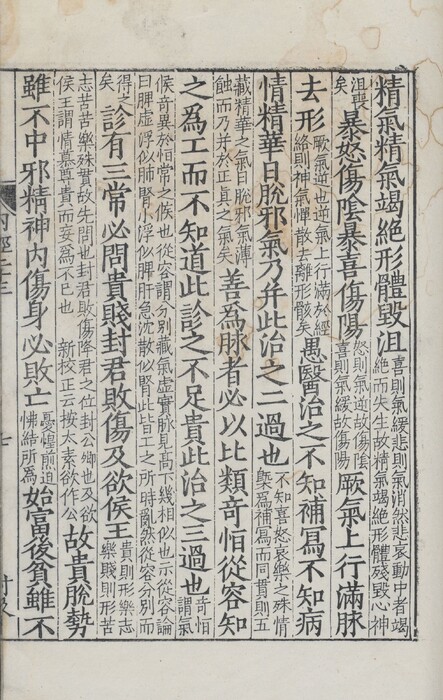 精氣精氣竭絕形體毀沮喜則氣緩悲則氣消然悲哀動中者竭絕而失生故精氣竭絕形體殘毀心神
沮喪矣暴怒傷陰暴喜傷陽怒則氣逆故傷陰喜則氣緩故傷陽厥氣上行滿脉
去形厥氣逆也逆氣上行滿於經絡則神氣憚散去離形骸矣愚醫治之不知補寫不知病
情精華日脫邪氣乃并此治之二過也不知喜怒哀樂之殊情槩為補寫而同貫則五
藏精華之氣日脫邪氣薄蝕而乃并於正真之氣矣善為脉者必以比類奇恒從容知
之為工而不知道此診之不足貴此治之三過也奇恒謂氣
候奇異於恒常之候也從容謂分別藏氣虛實脉見高下幾相似也示從容論曰脾虛浮似肺腎小浮似脾肝急沈散似腎此皆工之所時亂然從容分別而
得之矣診有三常必問貴賤封君敗傷及欲侯王貴則形樂志樂賤則形苦
志苦苦樂殊貫故先問也封君敗傷降君之位封公卿也及欲侯王謂情慕尊貴而妄為不已也 新校正云按太素欲作公故貴脫勢
雖不中邪精神內傷身必敗亡憂惶煎迫怫結所為始富後貧雖不
七